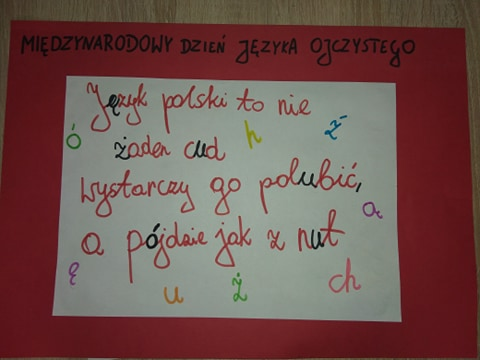 MIĘDZYNARODOWY DZIEŃ JĘZYKA OJCZYSTEGO
Język polski to nie
ó h ź
żaden cud
wystarczy go polubić,
ą
a pójdzie jak z nut
ę u ż ch